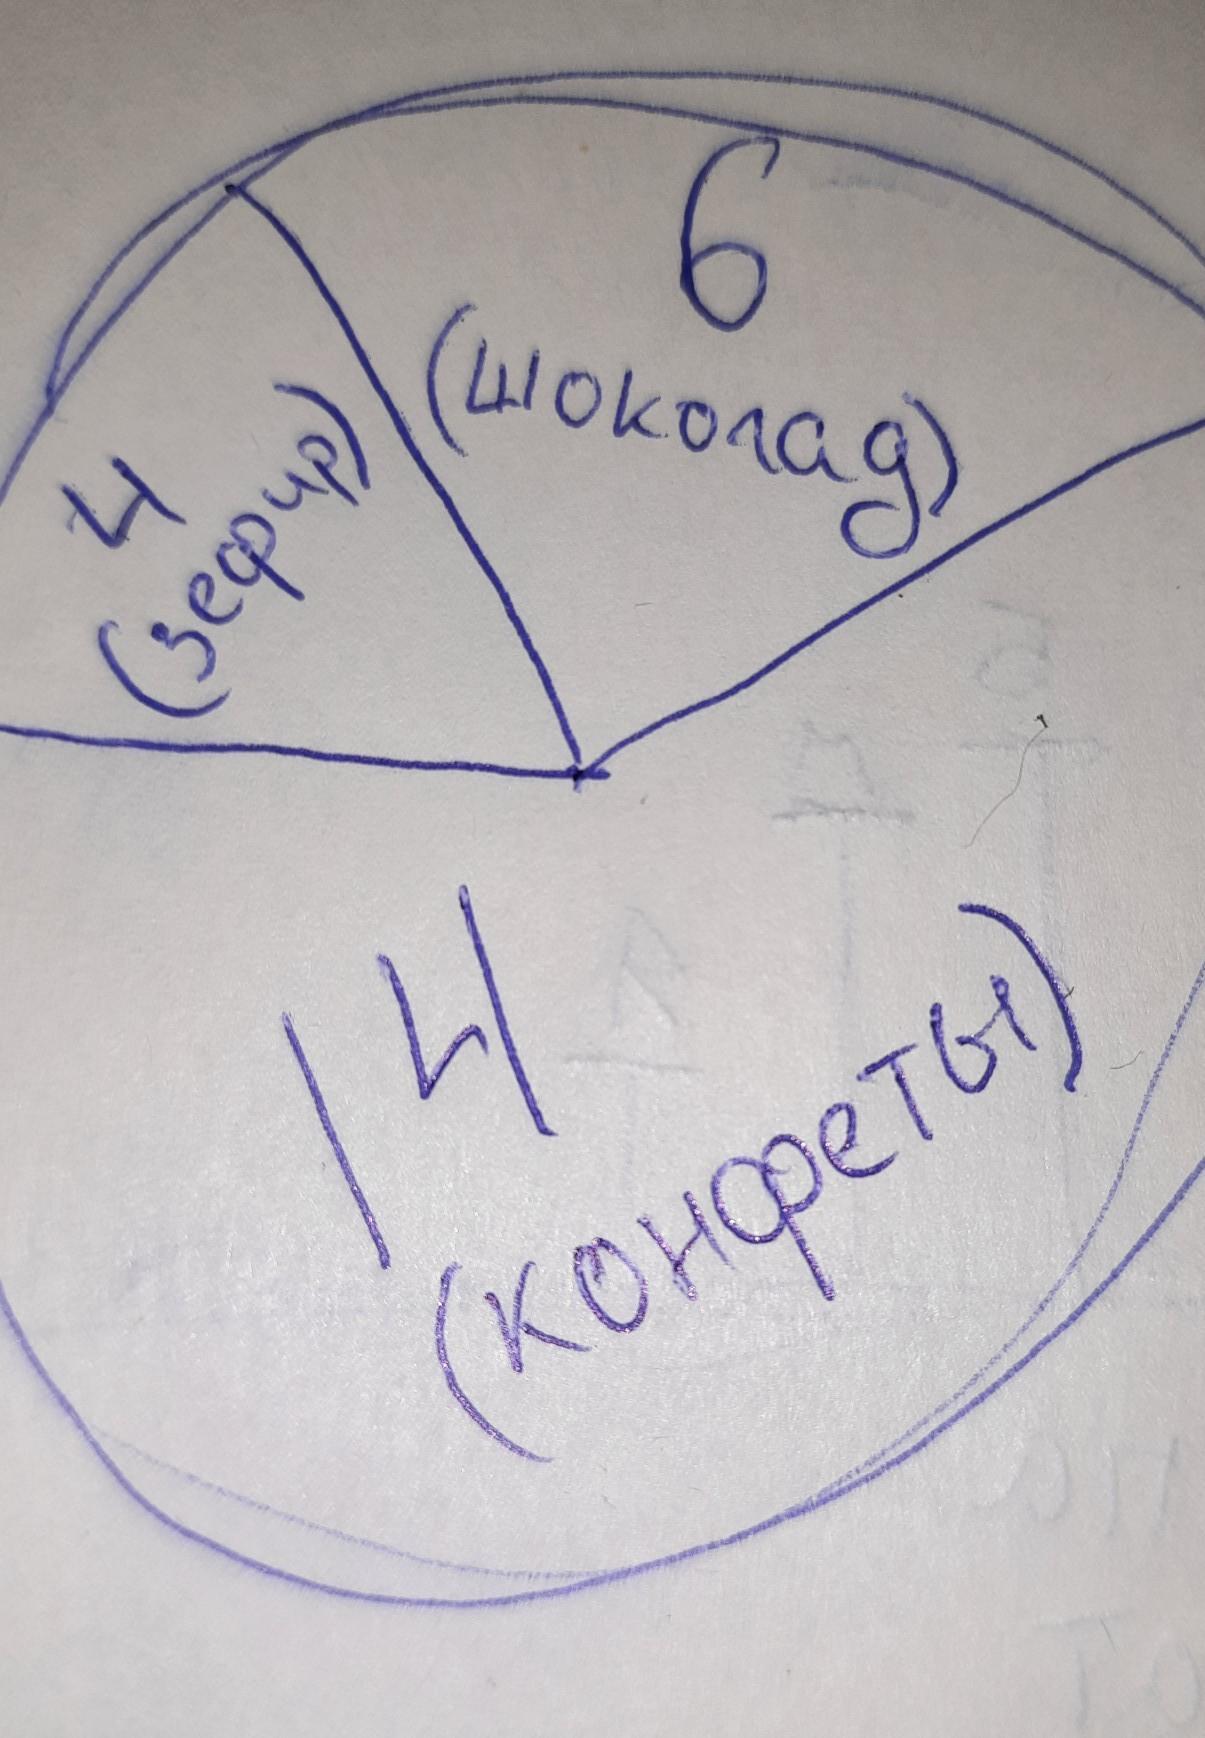 6
(шоколад)
4
(зефир)
14
(конфеты)